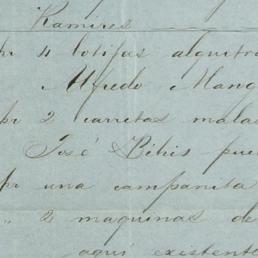 Ramires
pr 4 botijas alquitra
Alfredo Mang
pr 2 carretas mala
José Pihis pue
pr una campanita
" 2 maquinas de
aqui existente